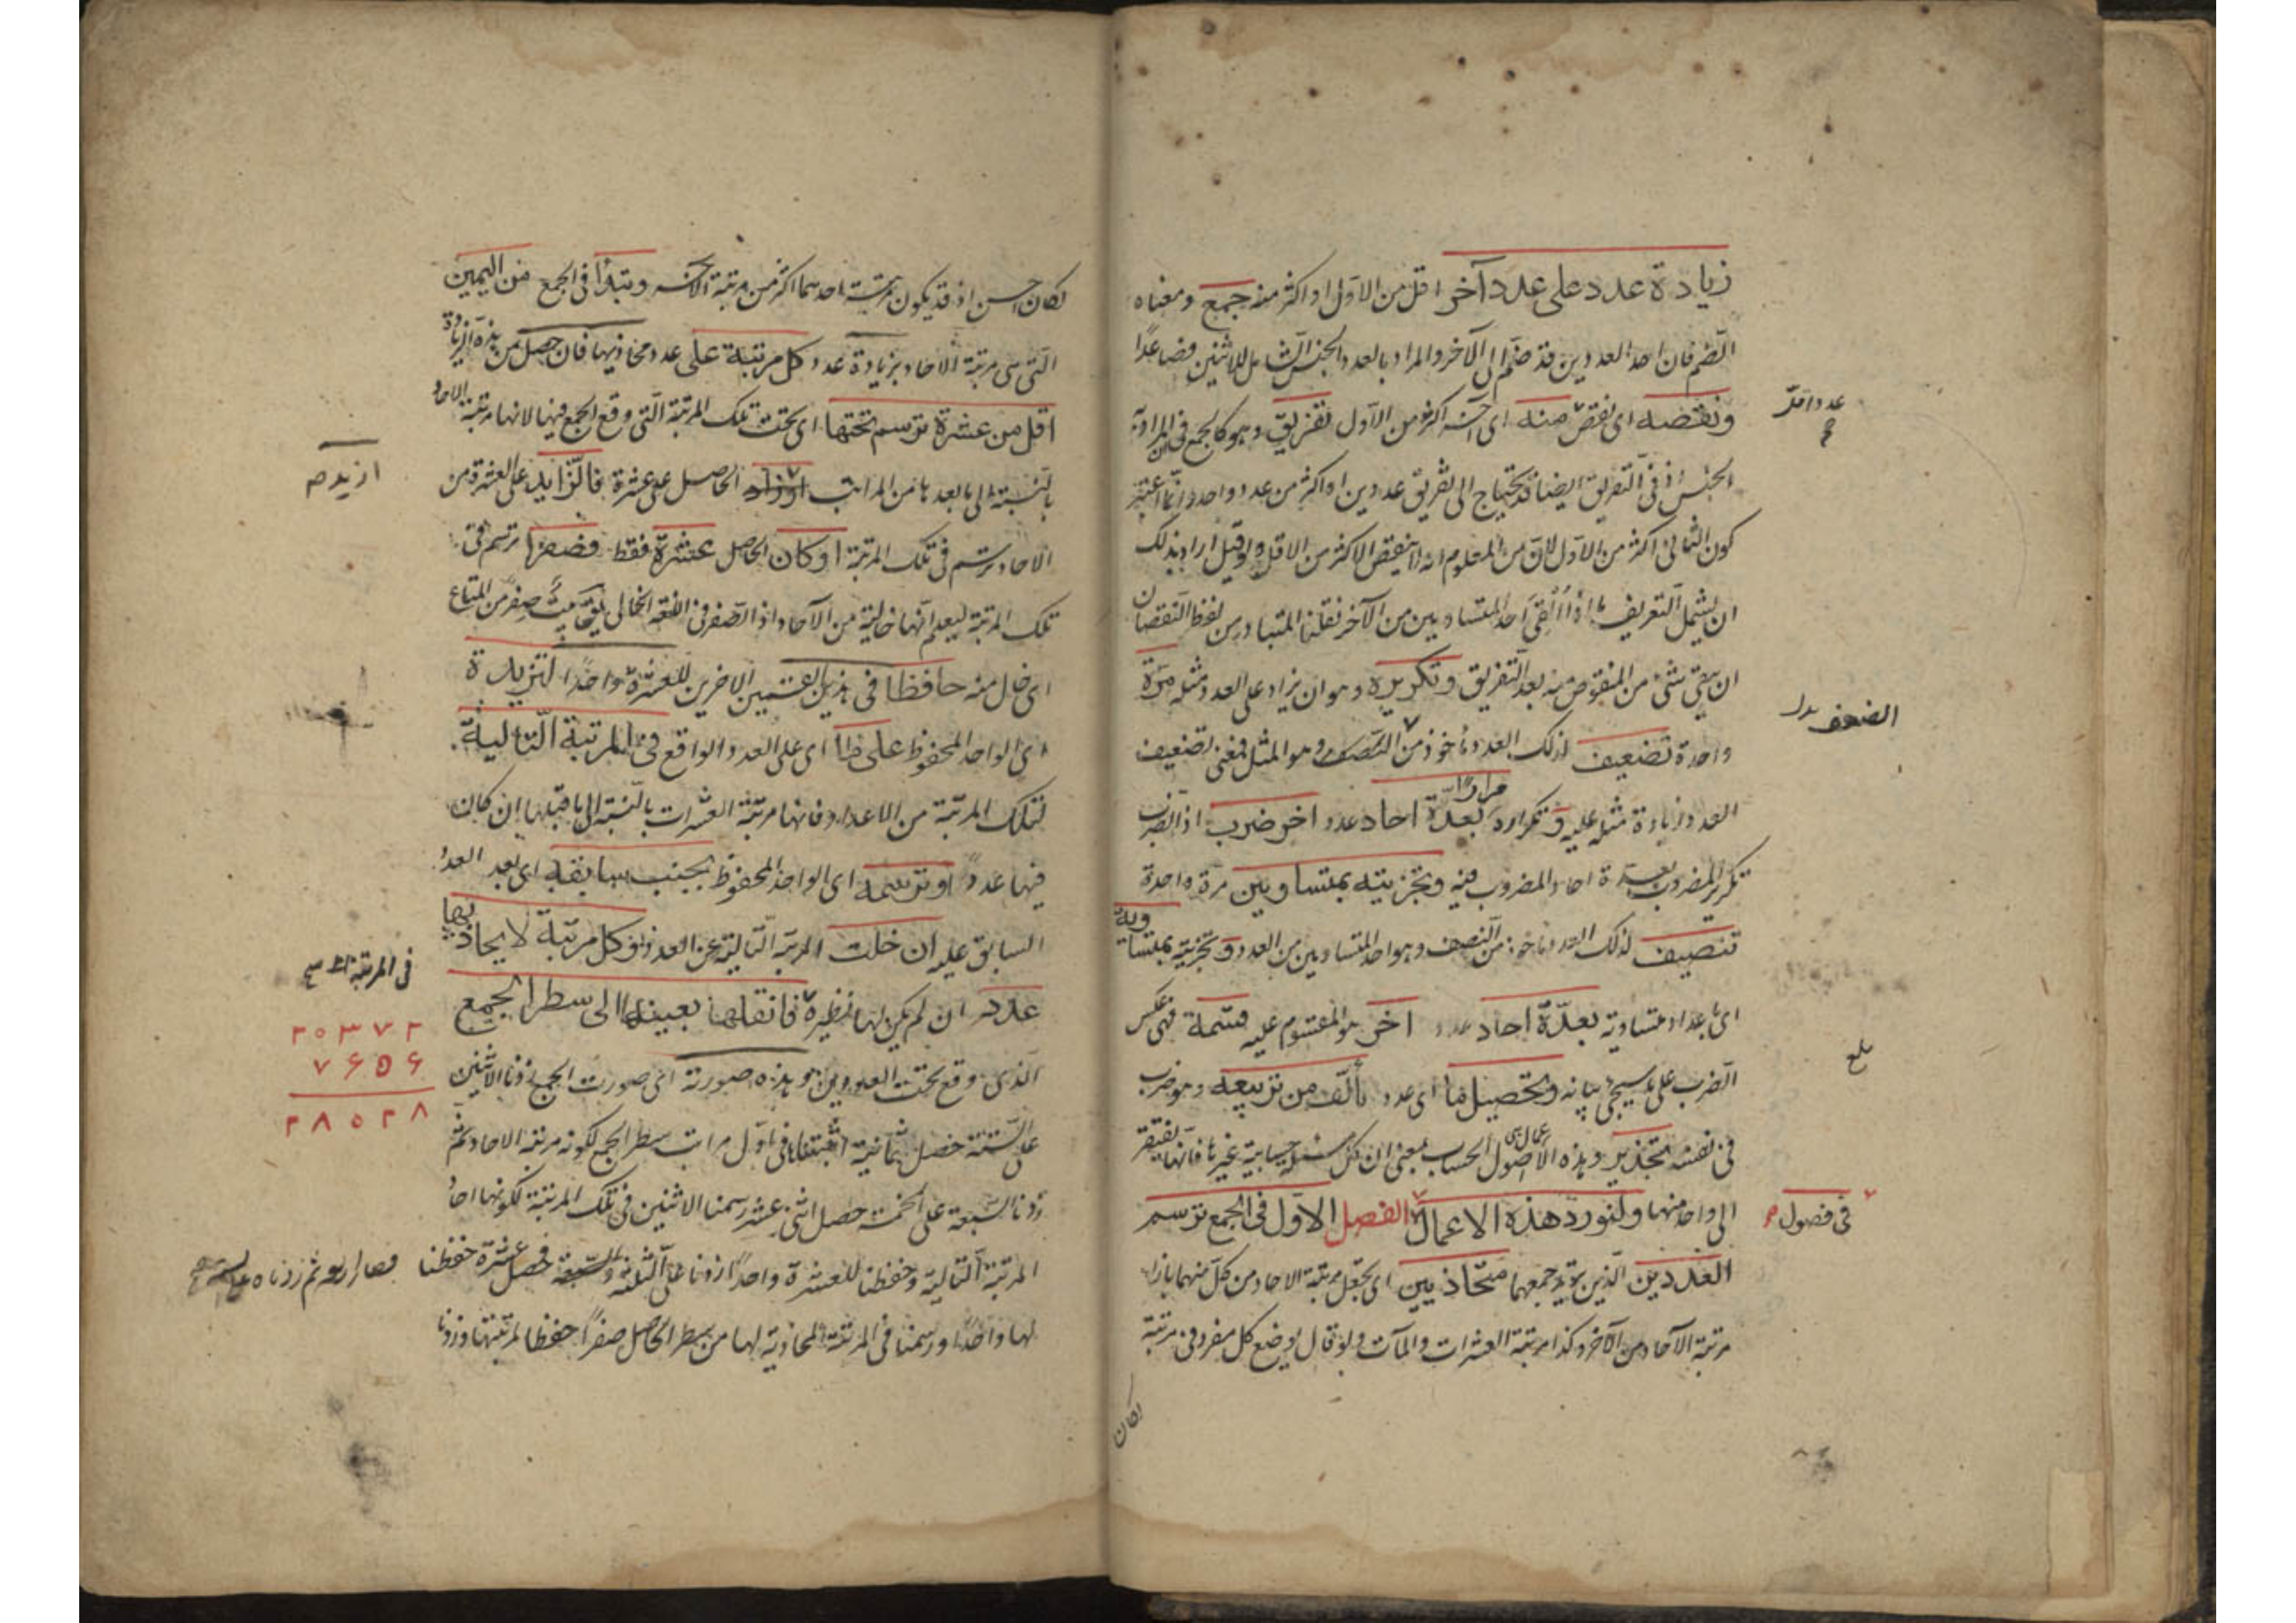 زيادة عدد على عدد آخر اقل من الاول او اكثر منه جمع ومعناه
الضم فان احد العددين قد ضم الى الآخر والمراد بالعدد الجنس الشامل للاثنين فصاعدًا
ونقصه اى نقص منه اى آخر اكثر من الاول تفريق وهو كالجمع فى ارادة
عدد اقل
الجنس اذ فى التفريق ايضا قد يحتاج الى تفريق عددين او اكثر من عدد واحد وانما اعتبر
كون الثانى اكثر من الاول لان من المعلوم انه لا ينقص الاكثر من الاقل ولو قيل اراد بذلك
ان يشمل التعريف ما اذا القى احد المتساويين من الآخر نقلنا المتبادر من لفظ النقصان
ان يبقى شئ من المنقوص منه بعد التفريق وتكريره وهو ان يزاد على العدد مثله مرة
واحدة تضعيف لذلك العدد ماخوذ من الضعف وهو المثل فمعنى تضعيف
الضعف
العدد زيادة مثله عليه وتكراره مرارا بعدة احاد عدد اخر ضرب اذ الضرب
تكرير المضروب بعدة احاد المضروب فيه وتجزيته بمتساويين مرة واحدة
تنصيف لذلك العدد ماخوذ من النصف وهو احد المتساويين من العدد وتجزيته بمتساوية
اى باعداد متساوية بعدة احاد عدد اخر هو المقسوم عليه قسمة فهى عكس
الضرب على ما سيجئ بيانه وتحصيل ما اى عدد تألف من تربيعه وهو ضرب
بلغ
فى نفسه تجذير وهذه الاعمال هى اصول الحساب بمعنى ان كل مسئلة حسابية غيرها فانها تفتقر
الى واحد منها ولنورد هذه الاعمال الفصل الاول فى الجمع ترسم
فى فصول
العددين الذين تريد جمعهما متحاذيين اى يجعل مرتبة الاحاد من كل منهما بازاء
مرتبة الآحاد من الآخر وكذا مرتبة العشرات والمآت ولو قال بوضع كل مفرد فى مرتبة
لكان
لكان احسن اذ قد يكون مرتبة احدهما اكثر من مرتبة الآخر وتبدأ فى الجمع من اليمين
التى هى مرتبة الآحاد بزيادة عدد كل مرتبة على عدد محاذيها فان حصل من هذه الزيادة
اقل من عشرة ترسم تحتها اى تحت تلك المرتبة التى وقع الجمع فيها لانها مرتبة الاحاد
بالنسبة الى ما بعدها من المراتب او زاد الحاصل على عشرة فالزايد على العشرة من
ازيد
الآحاد يرسم فى تلك المرتبة او كان الحاصل عشرة فقط فصفرا ترسم فى
تلك المرتبة ليعلم انها خالية من الآحاد اذ الصفر فى اللغة الخالى يقال بيت صفر من المتاع
اى خال منه حافظا فى هذين القسمين الاخرين للعشرة واحدًا لتزيده
اى الواحد المحفوظ على ما اى على العدد الواقع فى المرتبة التالية
لتلك المرتبة من الاعداد فانها مرتبة العشرات بالنسبة الى ما قبلها ان كان
فيها عدد او ترسمه اى الواحد المحفوظ بجنب سابقه اى بعد العدد
السابق عليه ان خلت المرتبة التالية عن العدد وكل مرتبة لا يحاذيها
فى المرتبة
عدد ان لم يكن لها نظيرة فانقلها بعينها الى سطر الجمع
الذى وقع تحت العددين وهذه صورته اى صورت الجمع زدنا الاثنين
٢٠٣٧٢
٧۶۵۶
٢٨٠٢٨
على الستة حصل ثمانية اثبتناها فى اول مراتب سطر الجمع لكونه مرتبة الآحاد ثم
زدنا السبعة على الخمسة حصل اثنى عشر رسمنا الاثنين فى تلك المرتبة لكونها احاد
المرتبة التالية وحفظنا للعشرة واحدًا زدنا على الثلثة فحصل عشرة حفظنا
فصار اربعة ثم زدناه على
لها واحدًا ورسمنا فى المرتبة المحاذية لها من سطر الحاصل صفرًا حفظا لمرتبتها وزدنا